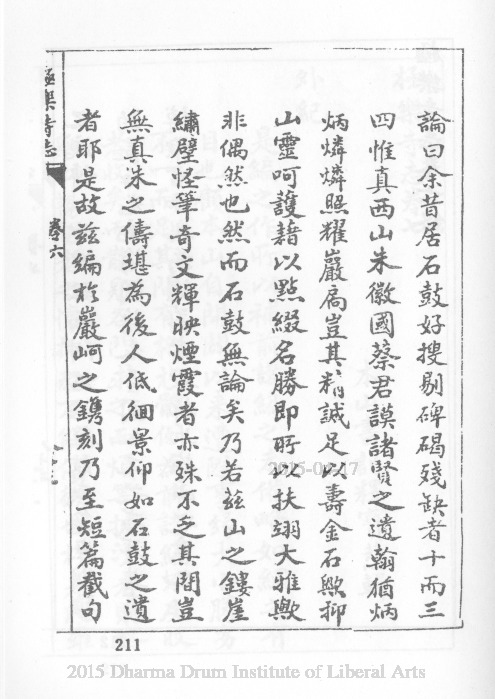 論曰余昔居石鼓好搜剔碑碣殘缺者十而三
四惟真西山朱徽國蔡君謨諸賢之遺翰猶炳
炳燐燐照耀巖扃豈其精誠足以壽金石歟抑
山靈呵護藉以點綴名勝即所以扶翊大雅歟
非偶然也然而石鼓無論矣乃若茲山之鏤崖
繡壁怪筆奇文輝映煙霞者亦殊不乏其間豈
無真朱之儔堪為後人低徊景仰如石鼓之遺
者耶是故茲編於巖岣之鐫刻乃至短篇截句
極樂寺志
卷六
2015-09-17
211
2015 Dharma Drum Institute of Liberal Arts